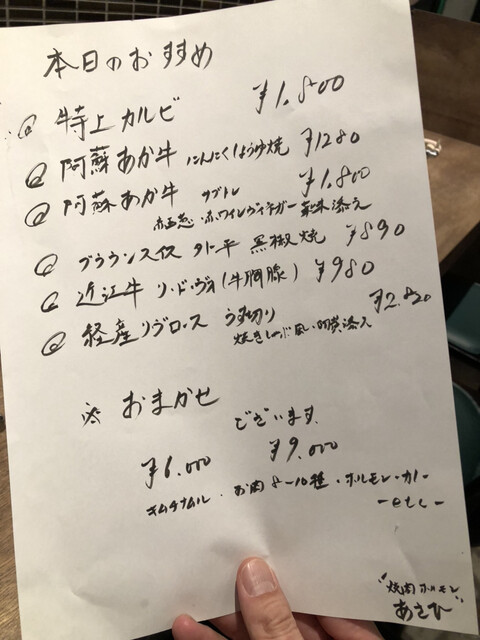 本日のおすすめ
特上カルビ ¥1.800
阿蘇あか牛 にんにくしょうゆ焼 ¥1280
阿蘇あか牛 サブトン ¥1.800
赤ワインヴィネガー 添え
ブラウンスイス 黒椒焼 ¥890
近江牛 リ・ド・ヴォ(牛胸腺) ¥980
経産リブロース うす切り ¥2.820
焼きしゃぶ風・卵黄添え
※ おまかせ
ございます
¥6.000 ¥9.000
キムチナムル・お肉8〜10種・ホルモン・カレー
-etc-
"焼肉ホルモン"
あさひ